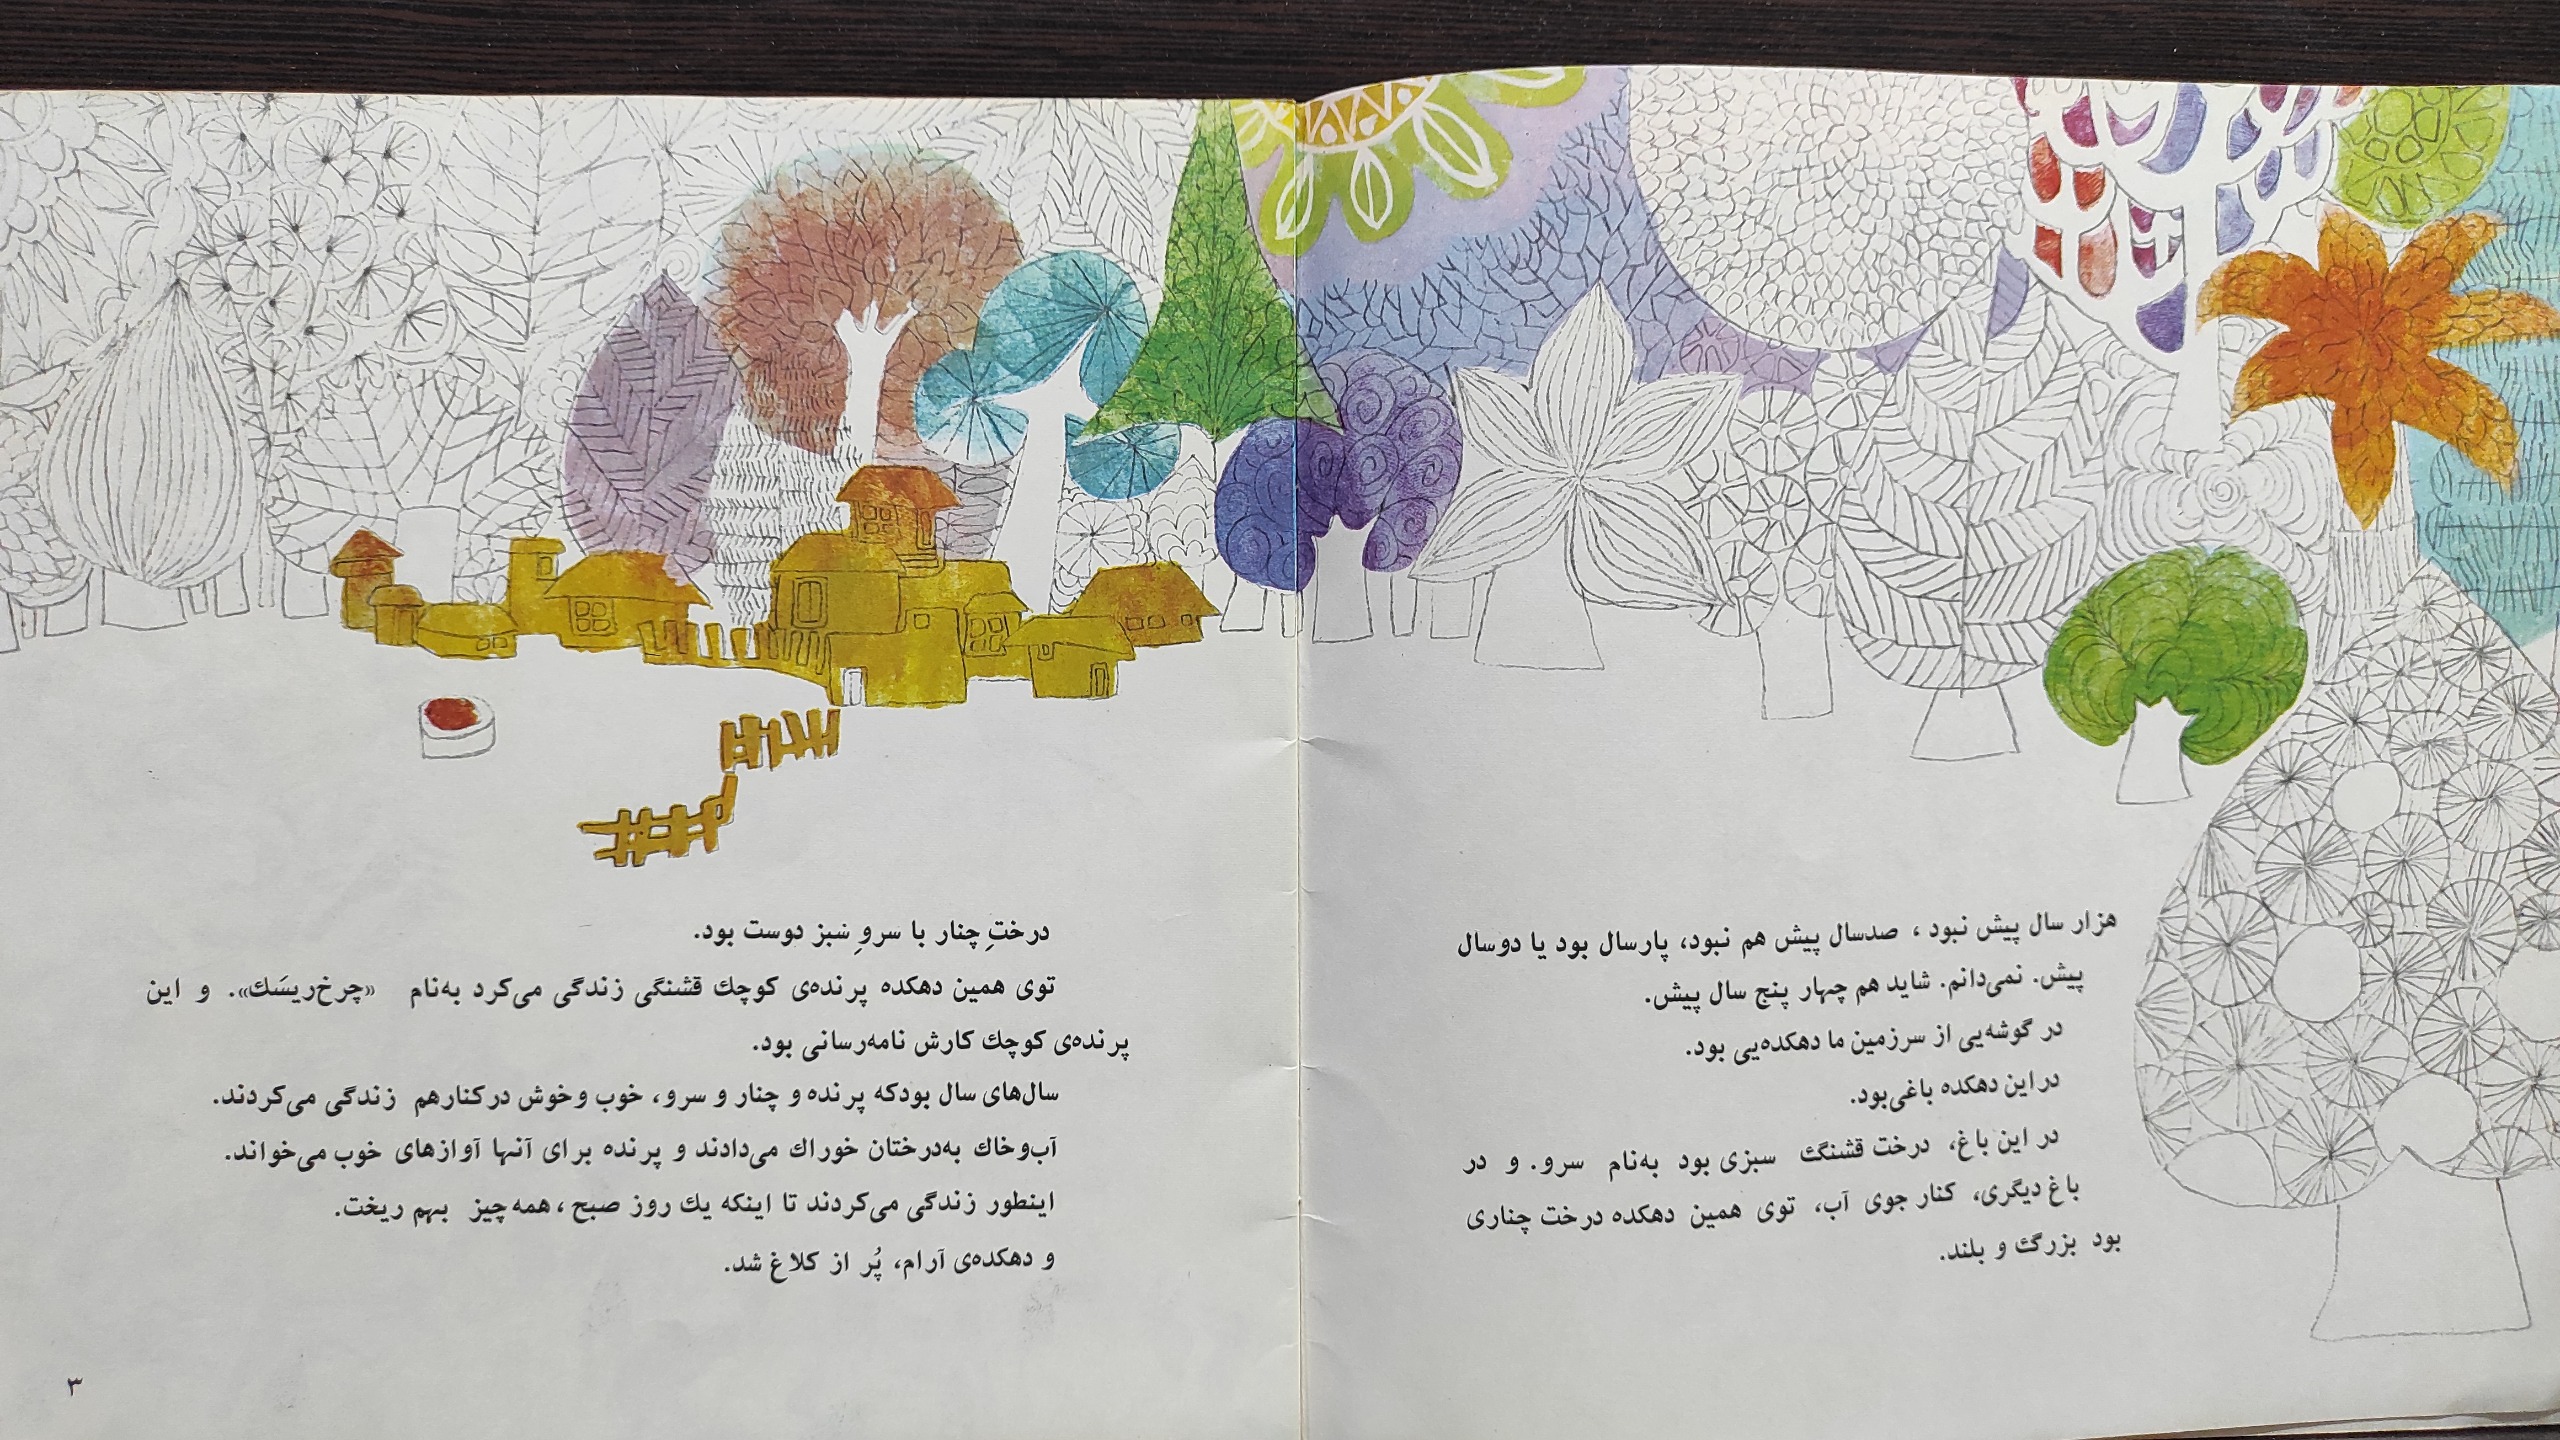 هزار سال پیش نبود ، صدسال پیش هم نبود، پارسال بود یا دوسال
پیش. نمی‌دانم. شاید هم چهار پنج سال پیش.
در گوشه‌یی از سرزمین ما دهکده‌یی بود.
در این دهکده باغی بود.
در این باغ، درخت قشنگ سبزی بود به‌نام سرو. و در
باغ دیگری، کنار جوی آب، توی همین دهکده درخت چناری
بود بزرگ و بلند.
درختِ چنار با سروِ سبز دوست بود.
توی همین دهکده پرنده‌ی کوچك قشنگی زندگی می‌کرد به‌نام «چرخ‌ریسَك». و این
پرنده‌ی کوچك کارش نامه‌رسانی بود.
سال‌های سال بود که پرنده و چنار و سرو، خوب و خوش در کنار هم زندگی می‌کردند.
آب و خاك به درختان خوراك می‌دادند و پرنده برای آنها آوازهای خوب می‌خواند.
اینطور زندگی می‌کردند تا اینکه یك روز صبح ، همه چیز بهم ریخت.
و دهکده‌ی آرام، پُر از کلاغ شد.
۳